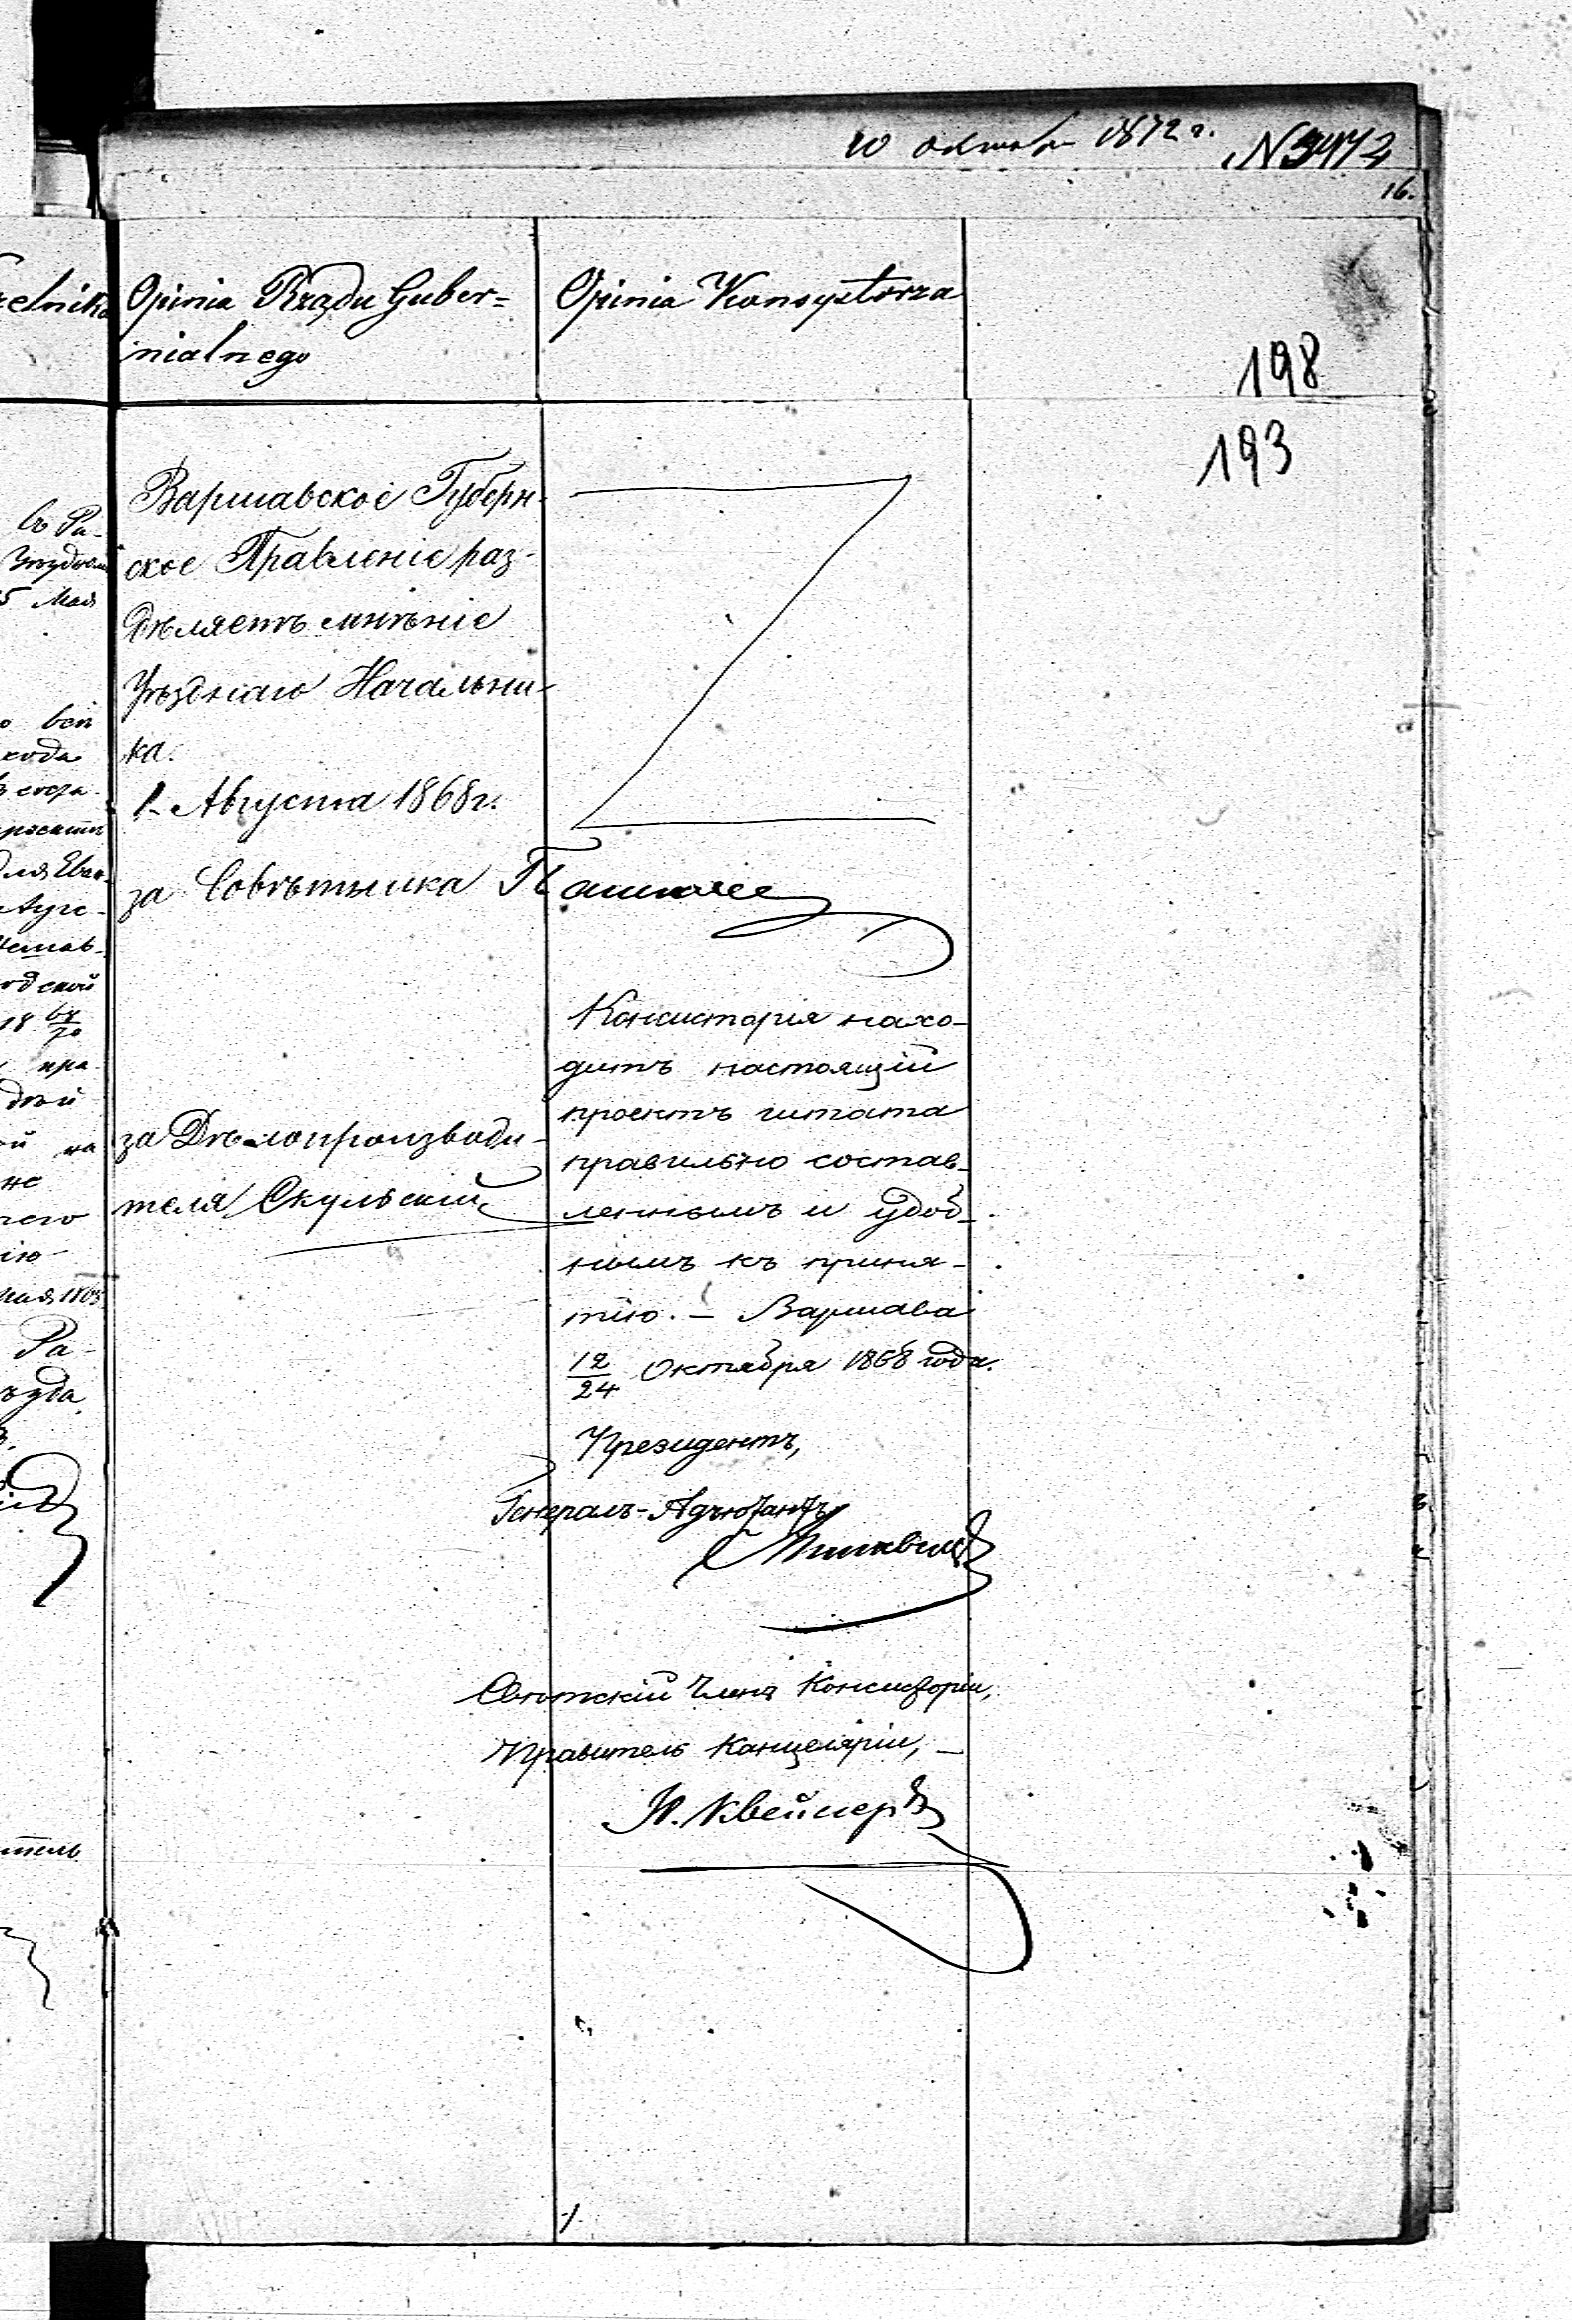 10 октября 1872 г. N 3472
16.
Opinia Rządu Guber=
nialnego
Opinia Konsystorza
198
193
Варшавское Губерн-
ское Правленіе раз-
дѣляетъ мнѣніе
Уѣзднаго Начальни-
ка.
1 Августа 1868 г.
за Совѣтника
за Дѣлопроизводи-
теля Скульскій
Консисторія нахо-
дитъ настоящій
проектъ штата
правильно состав-
леннымъ и удоб-
нымъ къ приня-
тію. — Варшава
12/24 Октября 1868 года.
Президентъ,
Генералъ-Адъютантъ
Минквицъ
Свѣтскій Членъ Консисторіи,
Правитель Канцеляріи, —
въ Ра-
5 Мая
о вей
хода
для Еван-
одской
18 68/70
пра-
ой на
не
чего
ію
Ра-
ѣзда
тель